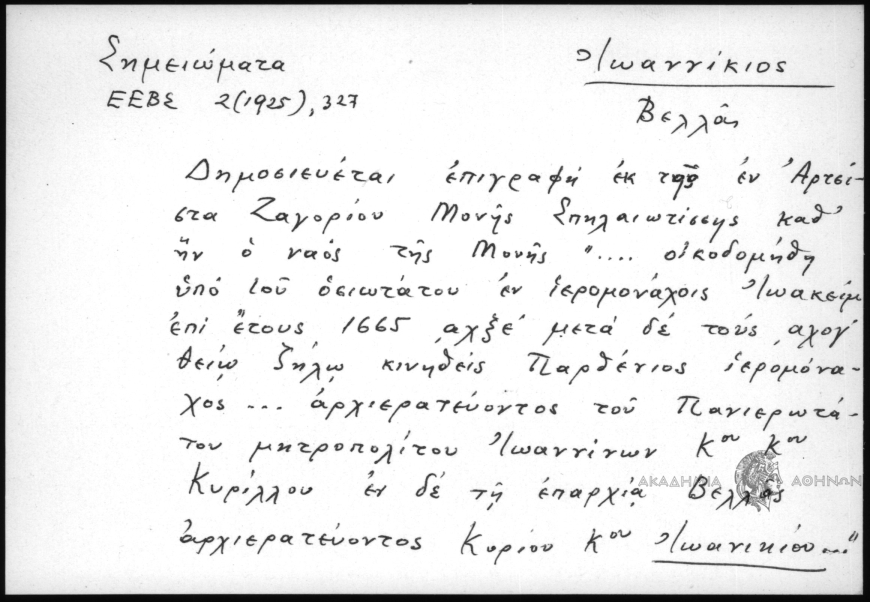 Σημειώματα
ΕΕΒΣ 2(1925), 327
Ἰωαννίκιος
Βελλᾶς
Δημοσιευέται ἐπιγραφή ἐκ τῆς ἐν Ἀρτσί-
στα Ζαγορίου Μονῆς Σπηλαιωτίσσης καθ'
ἥν ὁ ναός τῆς Μονῆς ".... οἰκοδομήθη
ὑπό τοῦ ὁσιωτάτου ἐν ἱερομονάχοις Ἰωακείμ
ἐπί ἔτους 1665 ͵αχξέ μετά δέ τούς ͵αχογ́
θείῳ ζήλῳ κινηθείς Παρθένιος ἱερομόνα-
χος ... ἀρχιερατεύοντος τοῦ Πανιερωτά-
του μητροπολίτου Ἰωαννίνων Κου Κου
Κυρίλλου ἐν δέ τῇ ἐπαρχίᾳ Βελλᾶς
ἀρχιερατεύοντος Κυρίου Κου Ἰωανικίου..."
ΑΚΑΔΗΜΙΑ ΑΘΗΝΩΝ